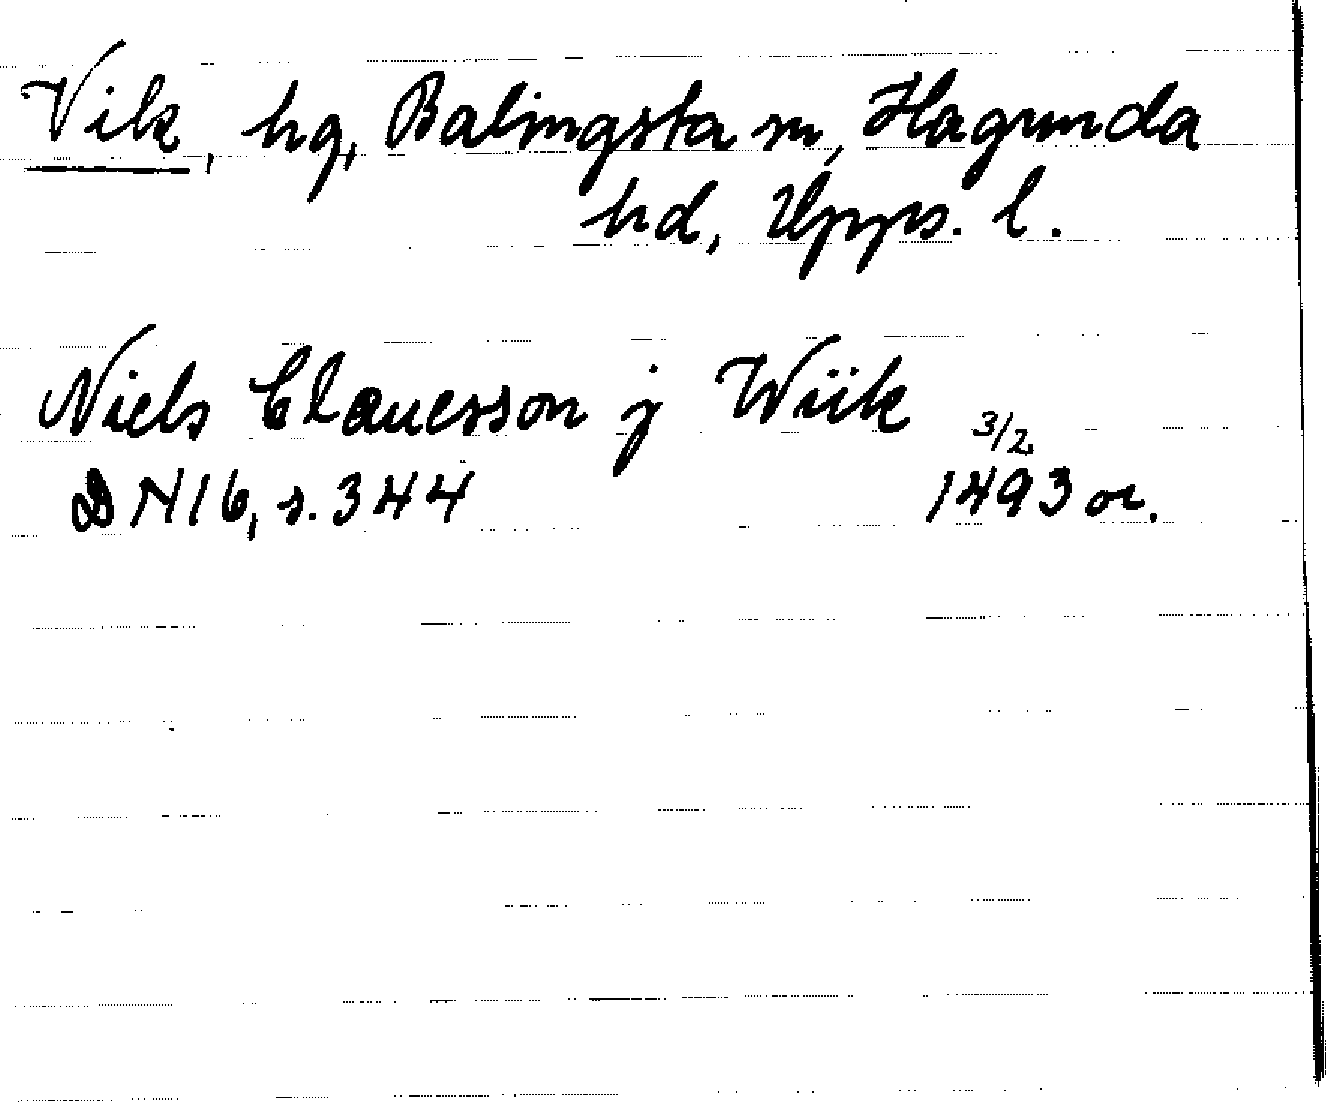 Vik, hg, Balingsta sn, Hagunda
hd, Upps. l.
Niels Clauesson j Wiik 3/2
DN16, s. 344 1493 or.